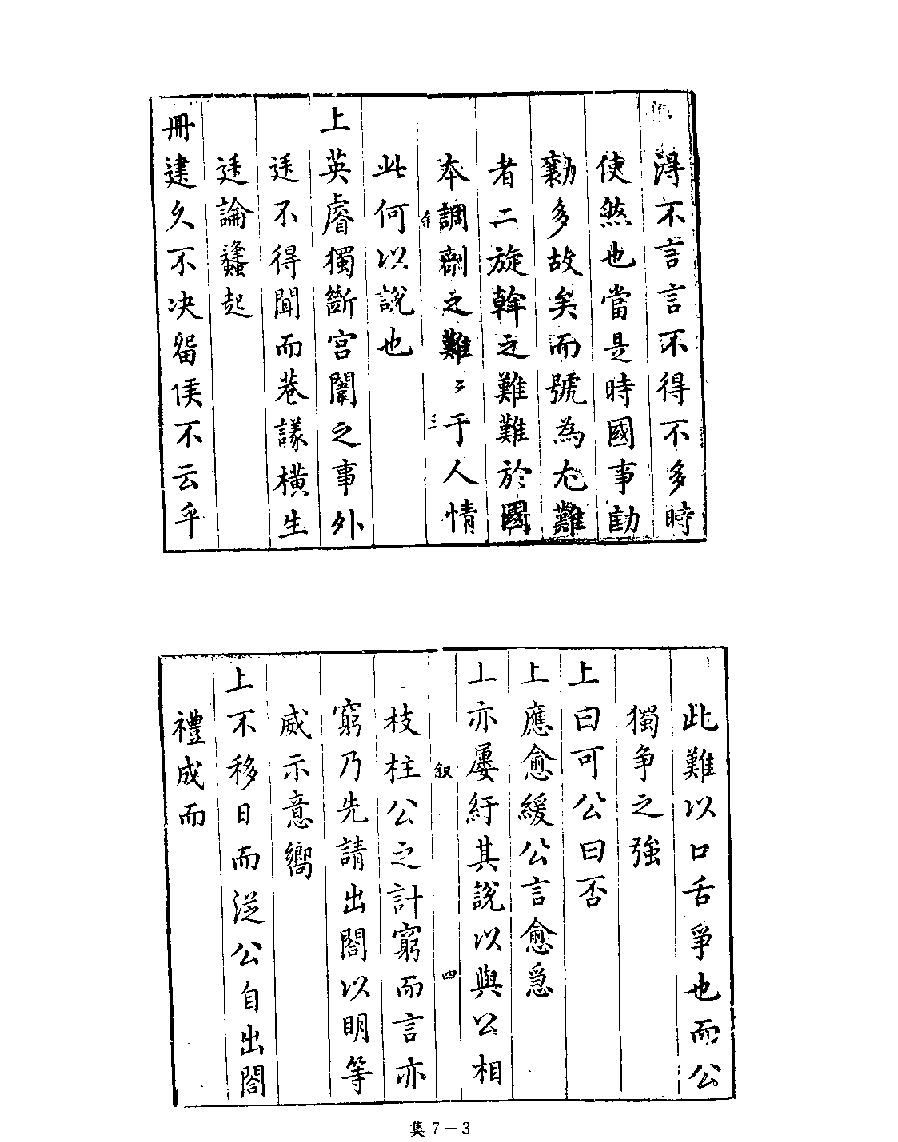 得不言言不得不多時
使煞也當是時國事劻
勷多故矣而號為尤難
者二旋斡之難難於國
本調劑之難〻于人情
序 三
此何以說也
上英睿獨斷宮闈之事外
廷不得聞而巷議橫生
廷論蠭起
冊建久不决留侯不云乎
此難以口舌爭也而公
獨争之強
上曰可公曰否
上應愈緩公言愈急
上亦屢紆其說以與公相
叙 四
枝柱公之計窮而言亦
窮乃先請出閤以明等
威示意嚮
上不移日而從公自出閤
禮成而
集7－3